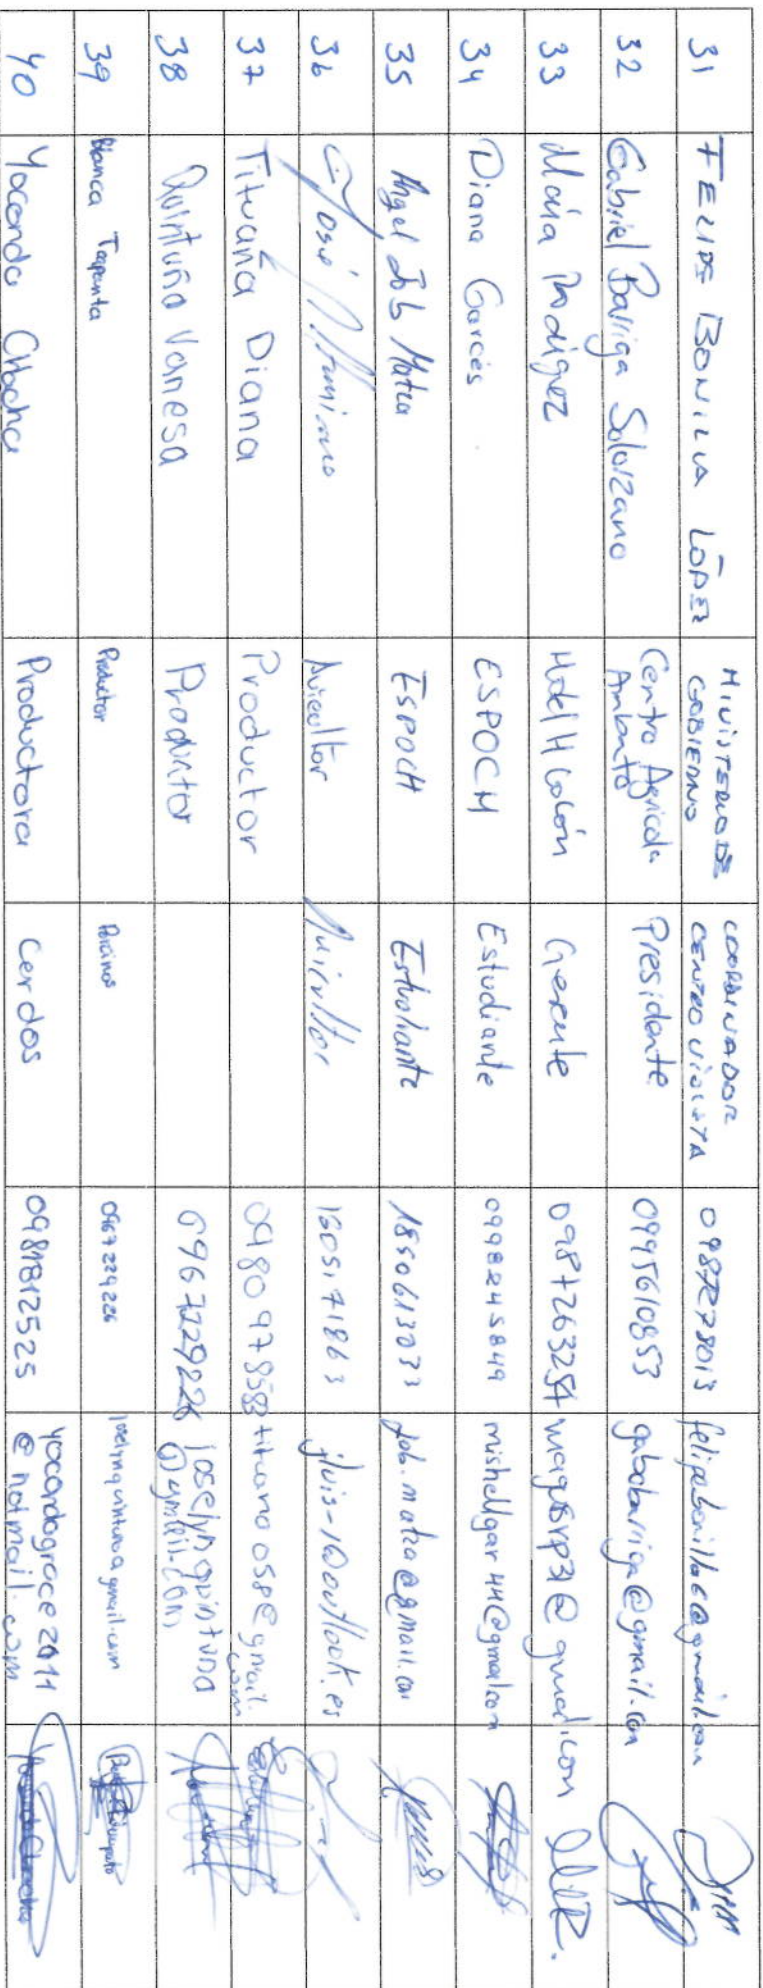 31 FELIPE BONILLA LÓPEZ MINISTERIO DE GOBIERNO COORDINADOR CENTRO VIOLETA 0987278013 felipebonilla6@gmail.com
32 Gabriel Barriga Solorzano Centro Agricola Ambato Presidente 0995610853 gabobarriga@gmail.com
33 María Rodríguez Hotel H Colón Gerente 0987263254 magusrp31@gmail.com
34 Diana Garcés ESPOCH Estudiante 0998245849 mishellgar44@gmail.com
35 Angel Job Matza ESPOCH Estudiante 1850613033 job.matza@gmail.com
36 José Avicultor Avicultor 1805171863 jluis-10outlook.es
37 Tituaña Diana Productor 0980978588 tituano058@gmail.com
38 Quintuña Vanesa Productor 0967229226 joselynquintuna@gmail.com
39 Blanca Tapanta Productor Porcinos 0967229226 joselynquintuna gmail.com
40 Yoconda Chacha Productora Cerdos 0981812525 yocondagrace2011@hotmail.com